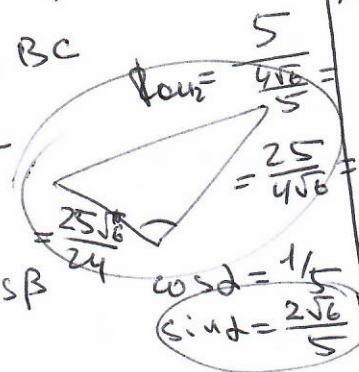 BC
= 5 / (4√6 / 5) =
= 25 / 4√6 =
= 25√6 / 24
sβ
cos α = 1/5
sin α = 2√6 / 5